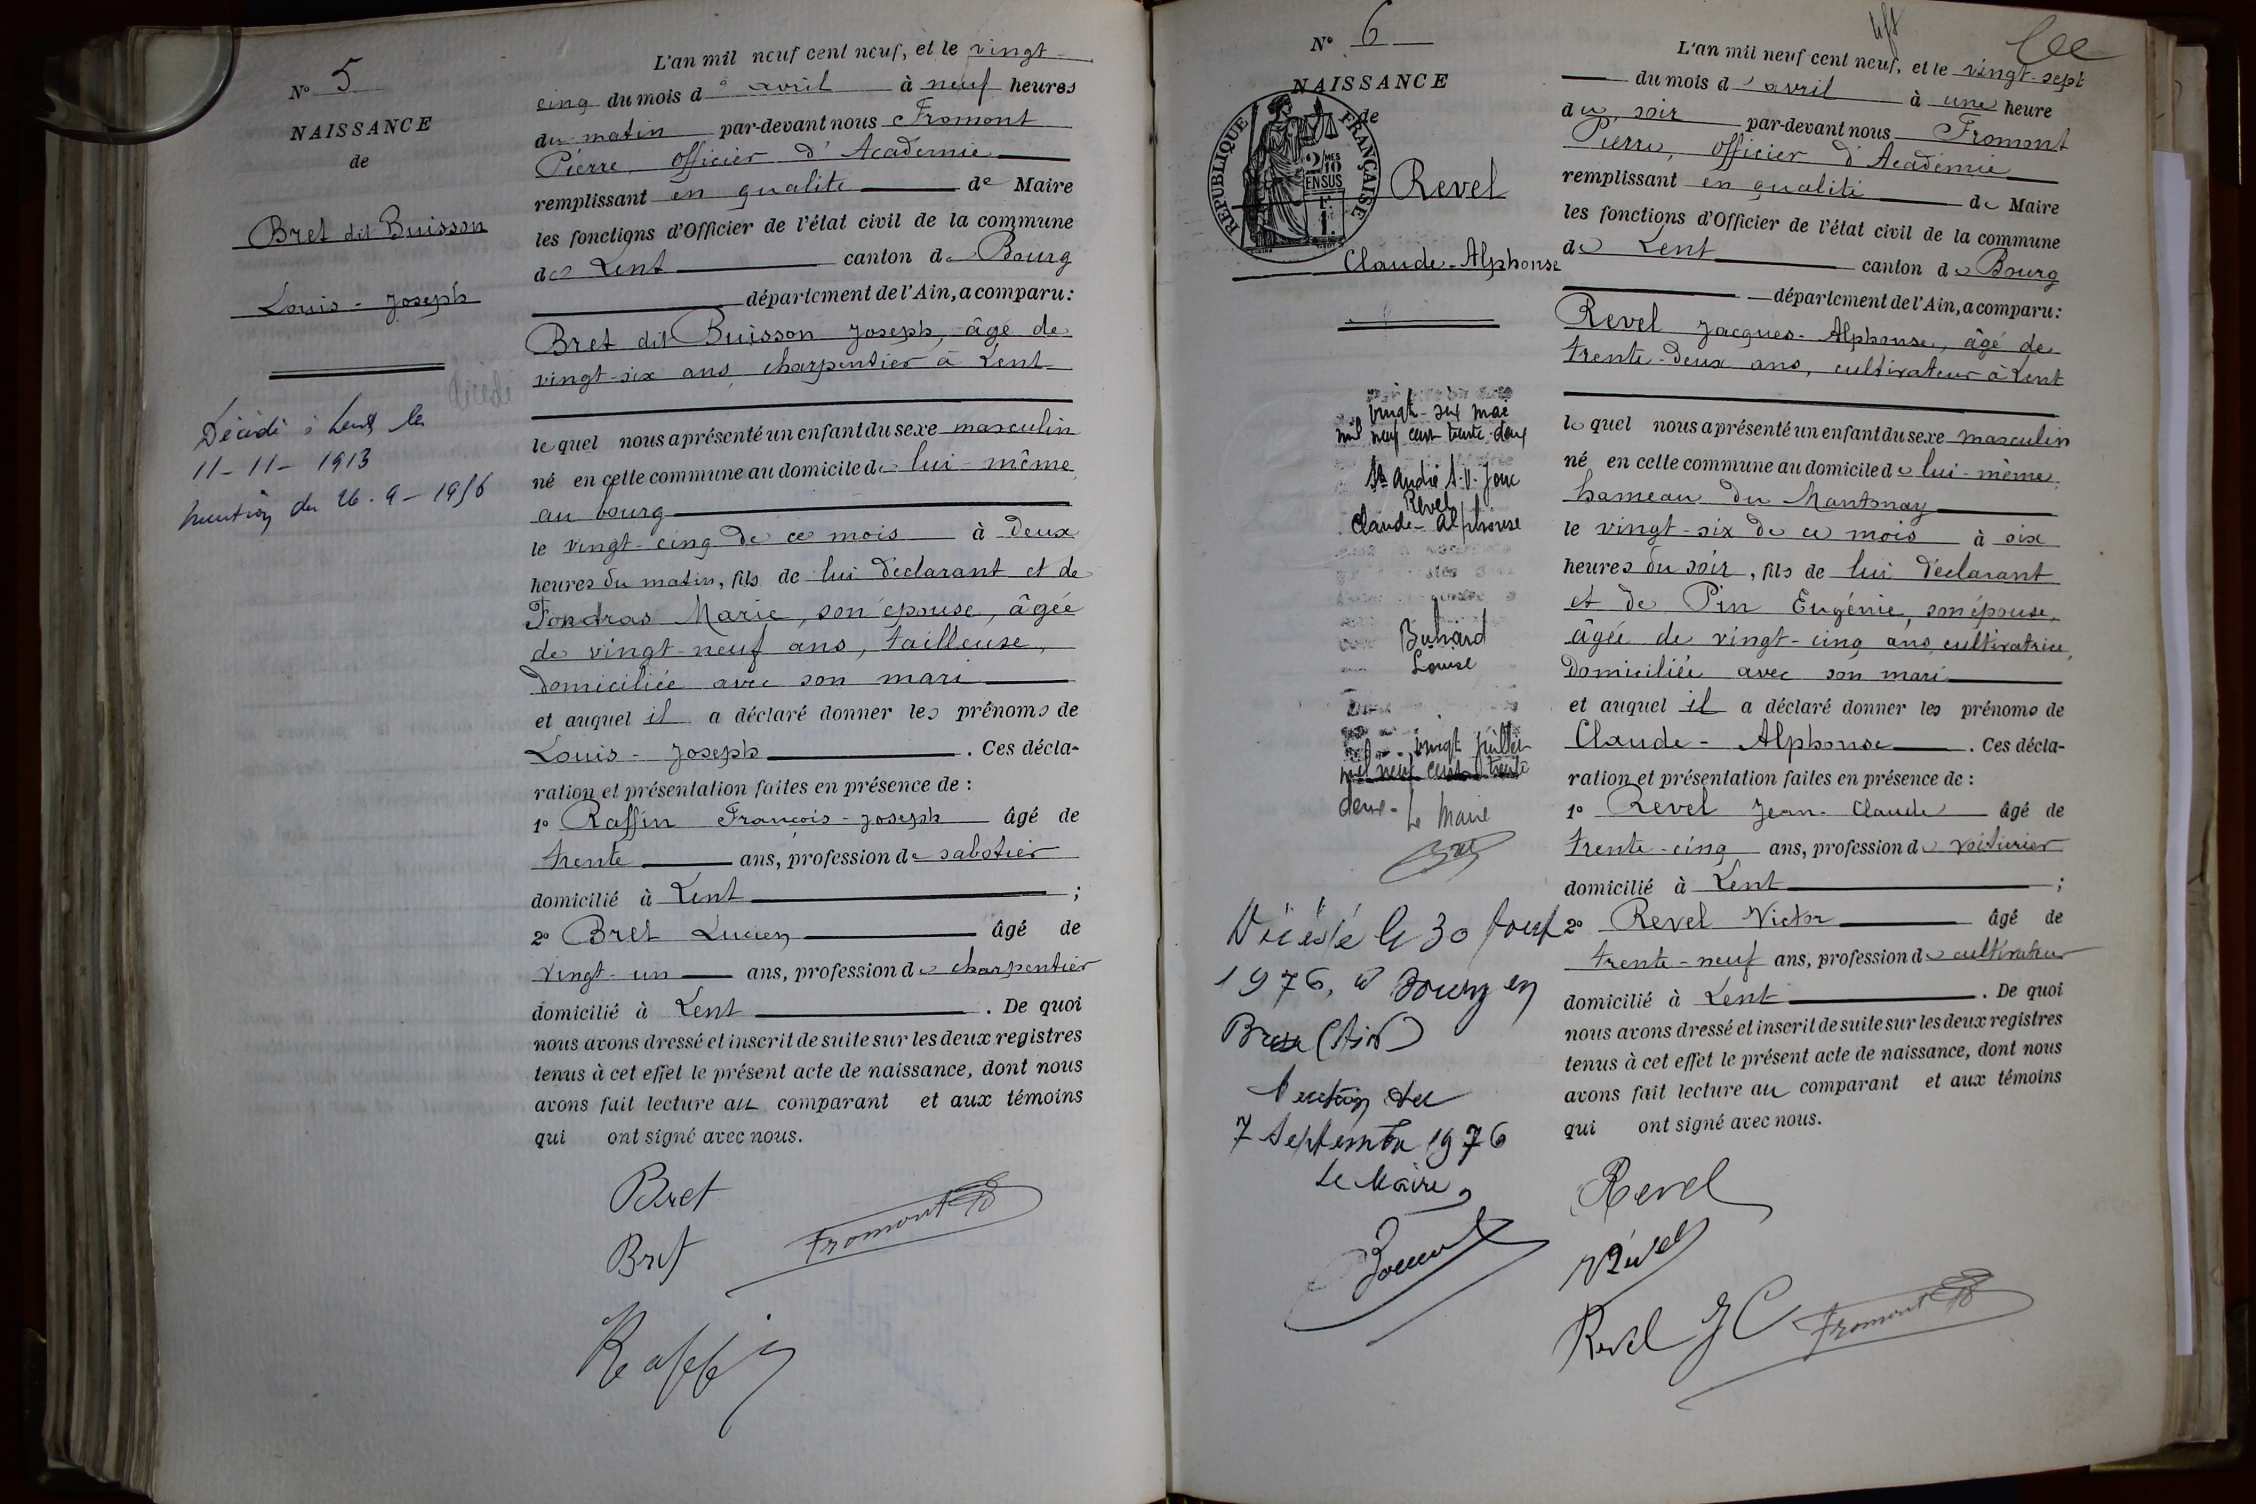 N° 5
NAISSANCE
de
Bret dit Buisson
Louis - Joseph
Décédé à Lent le
11-11-1913
du 26-9-1956
L'an mil neuf cent neuf, et le vingt-
cinq du mois d'avril à neuf heures
du matin par-devant nous Fromont
Pierre, Officier d'Académie
remplissant en qualité de Maire
les fonctions d'Officier de l'état civil de la commune
de Lent canton de Bourg
département de l'Ain, a comparu:
Bret dit Buisson Joseph, âgé de
vingt-six ans charpentier à Lent
lequel nous a présenté un enfant du sexe masculin
né en cette commune au domicile de lui-même
au bourg
le vingt-cinq de ce mois à deux
heures du matin, fils de lui déclarant et de
Fondras Marie, son épouse, âgée
de vingt-neuf ans, tailleuse,
domiciliée avec son mari
et auquel il a déclaré donner les prénoms de
Louis - Joseph. Ces décla-
ration et présentation faites en présence de :
1° Raffin François-Joseph âgé de
trente ans, profession de sabotier
domicilié à Lent ;
2° Bret Lucien âgé de
vingt-un ans, profession de charpentier
domicilié à Lent. De quoi
nous avons dressé et inscrit de suite sur les deux registres
tenus à cet effet le présent acte de naissance, dont nous
avons fait lecture au comparant et aux témoins
qui ont signé avec nous.
Bret
Bret
Fromont
Raffin
N° 6
NAISSANCE
de
RÉPUBLIQUE FRANÇAISE
2/10 EN SUS
1F.
Revel
Claude-Alphonse
vingt-six mai
mil neuf cent trente-deux
St André s.V. Jonc
Revel
Claude-Alphonse
Buhard
Louise
vingt juillet
mil neuf cent trente
deux-
Le Maire
Décédé le 30 Août
1976, à Bourg en
Bresse (Ain)
Mention du
7 Septembre 1976
Le Maire,
L'an mil neuf cent neuf, et le vingt-sept
du mois d'avril à une heure
du soir par-devant nous Fromont
Pierre, Officier d'Académie
remplissant en qualité de Maire
les fonctions d'Officier de l'état civil de la commune
de Lent canton de Bourg
département de l'Ain, a comparu:
Revel Jacques-Alphonse, âgé de
trente-deux ans, cultivateur à Lent
lequel nous a présenté un enfant du sexe masculin
né en cette commune au domicile de lui-même,
hameau du Mantonay
le vingt-six de ce mois à six
heures du soir, fils de lui déclarant
et de Pin Eugénie, son épouse,
âgée de vingt-cinq ans cultivatrice,
domiciliée avec son mari
et auquel il a déclaré donner les prénoms de
Claude - Alphonse. Ces décla-
ration et présentation faites en présence de :
1° Revel Jean-Claude âgé de
trente-cinq ans, profession de voiturier
domicilié à Lent ;
2° Revel Victor âgé de
trente-neuf ans, profession de cultivateur
domicilié à Lent. De quoi
nous avons dressé et inscrit de suite sur les deux registres
tenus à cet effet le présent acte de naissance, dont nous
avons fait lecture au comparant et aux témoins
qui ont signé avec nous.
Revel
Revel
Revel J C
Fromont